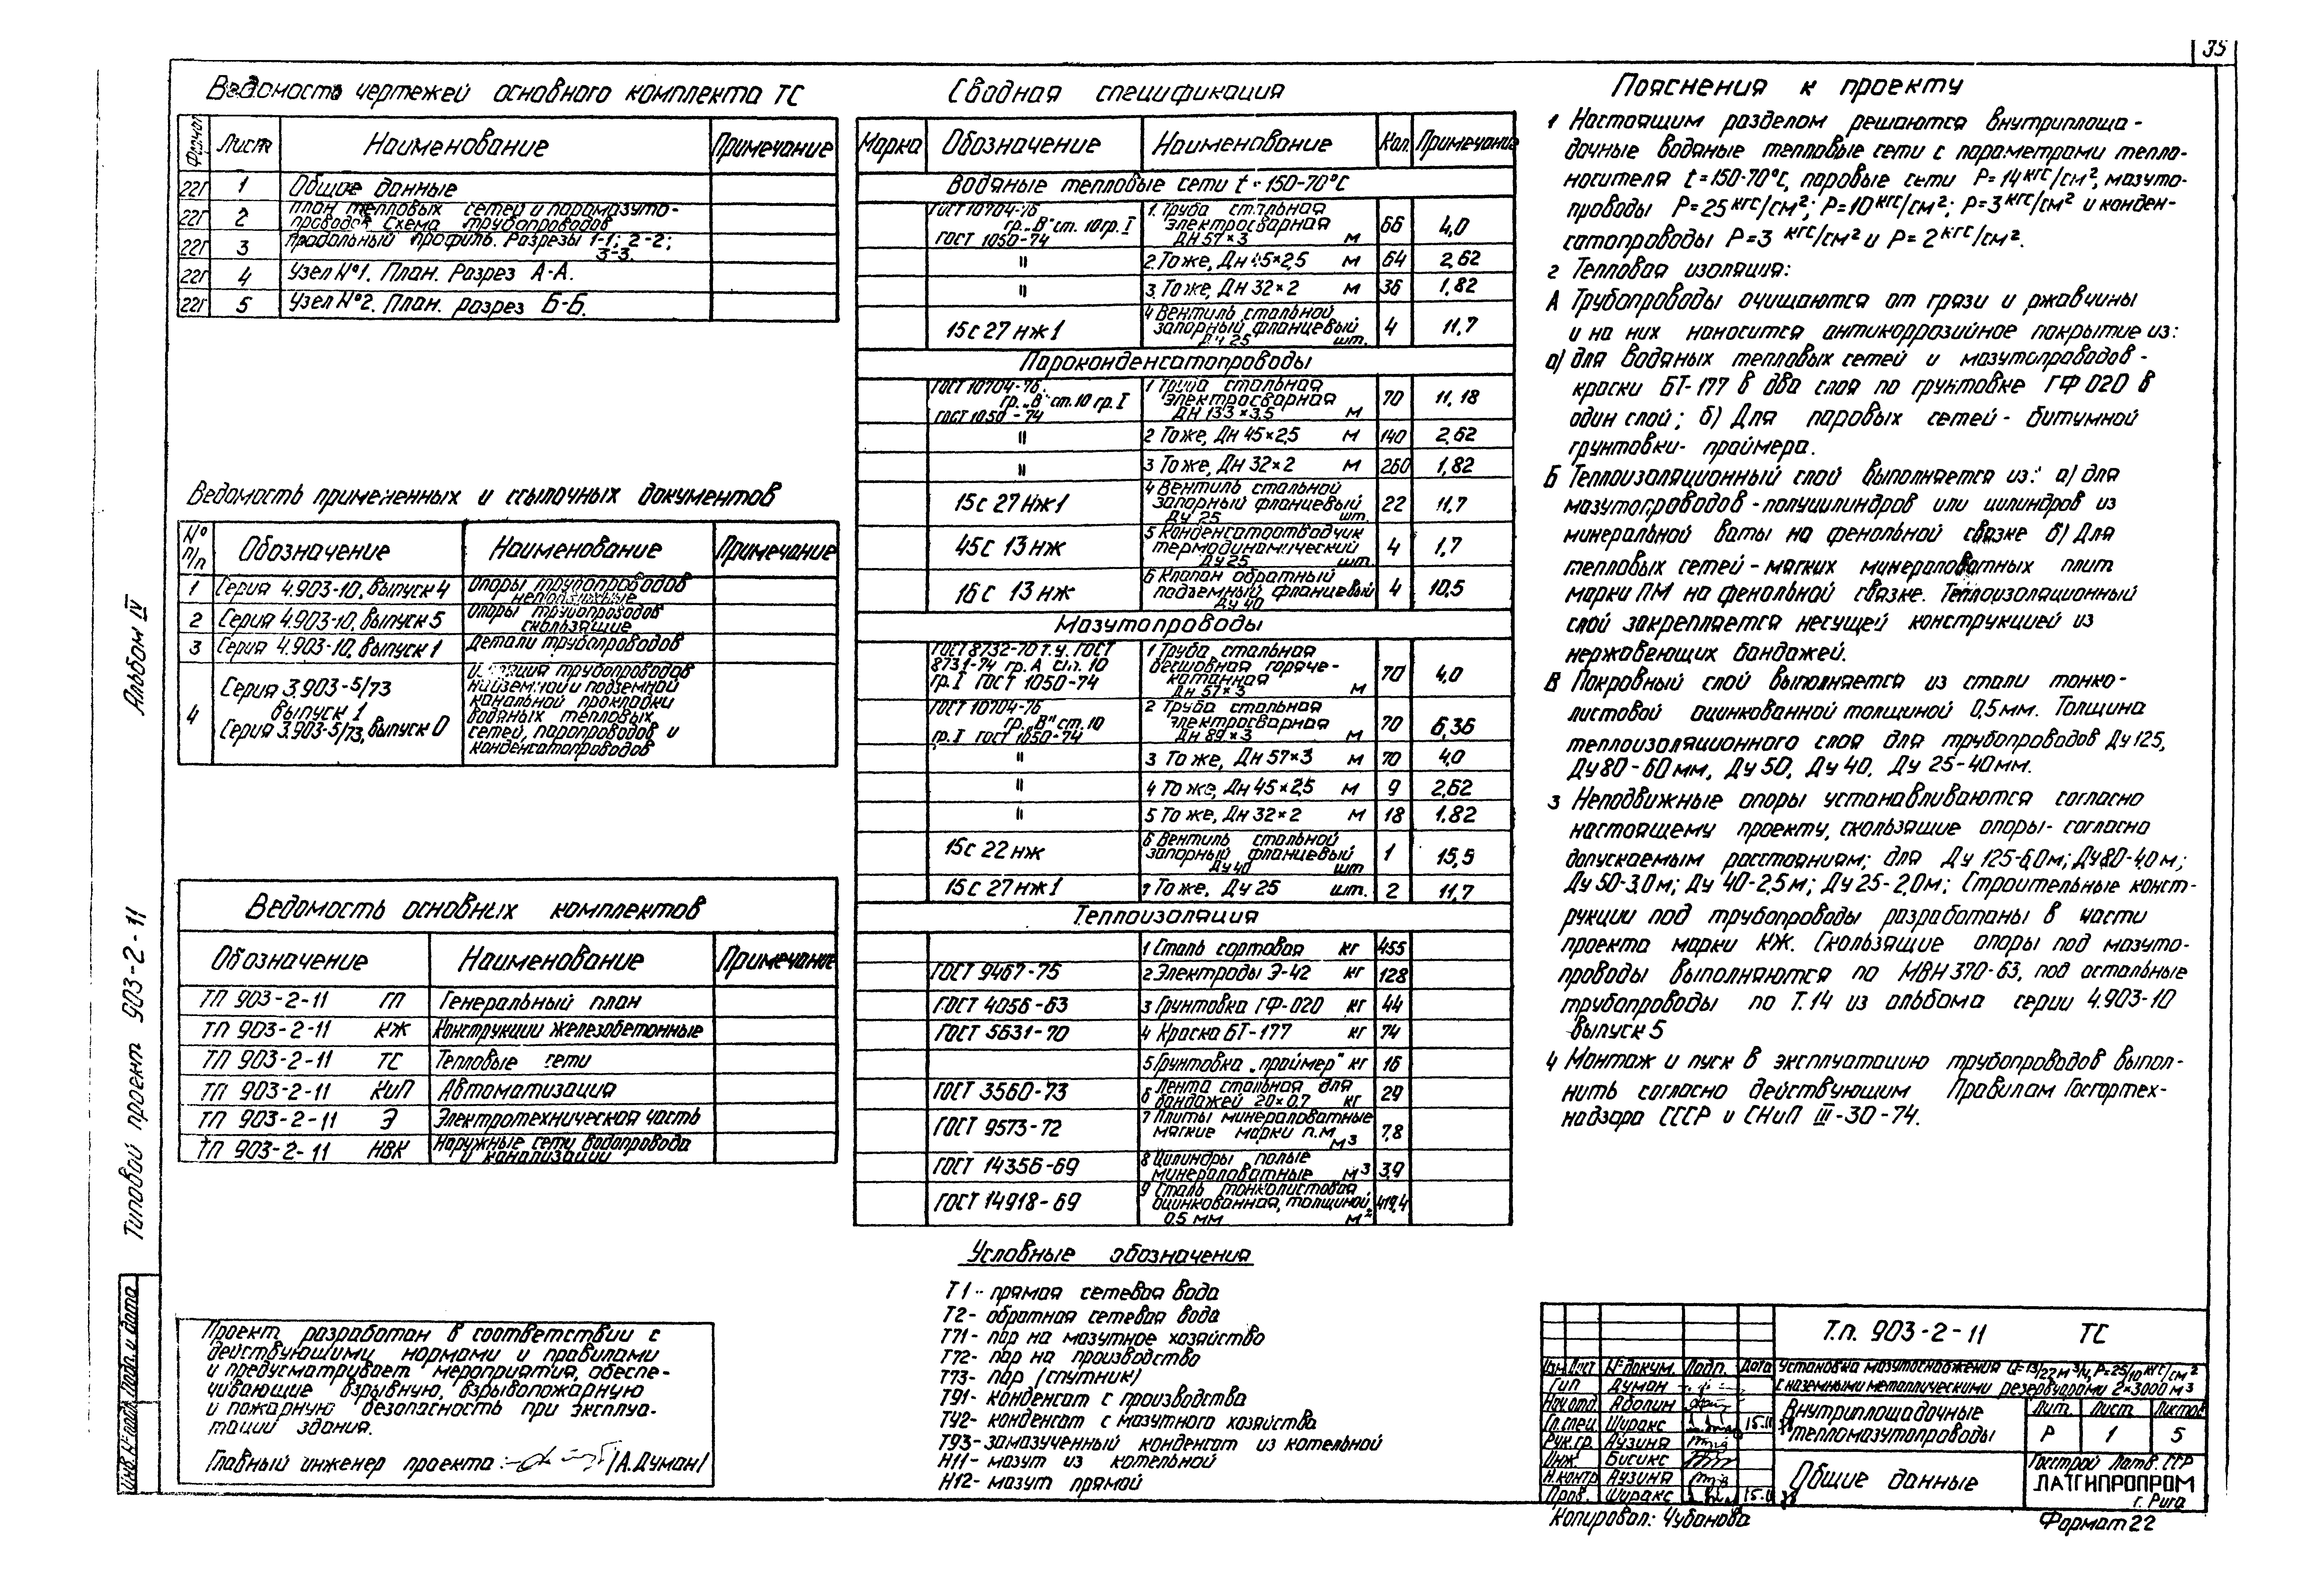 35
Ведомость чертежей основного комплекта ТС
Формат Лист Наименование Примечание
22Г 1 Общие данные
22Г 2 План тепловых сетей и паромазуто-
проводов Схема трубопроводов
22Г 3 Продольный профиль. Разрезы 1-1; 2-2;
3-3.
22Г 4 Узел №1. План. Разрез А-А.
22Г 5 Узел №2. План. разрез Б-Б.
Ведомость примененных и ссылочных документов
№ п/п Обозначение Наименование Примечание
1 Серия 4.903-10, выпуск 4 Опоры трубопроводов
неподвижные
2 Серия 4.903-10, выпуск 5 Опоры трубопроводов
скользящие
3 Серия 4.903-10, выпуск 1 Детали трубопроводов
4 Серия 3.903-5/73
выпуск 1
Серия 3.903-5/73, выпуск 0
трубопроводов
надземной и подземной
канальной прокладки
водяных тепловых
сетей, паропроводов и
конденсатопроводов
Ведомость основных комплектов
Обозначение Наименование Примечание
ТП 903-2-11 ГП Генеральный план
ТП 903-2-11 КЖ Конструкции железобетонные
ТП 903-2-11 ТС Тепловые сети
ТП 903-2-11 КиП Автоматизация
ТП 903-2-11 Э Электротехническая часть
ТП 903-2-11 НВК Наружные сети водопровода
и канализации
Проект разработан в соответствии с
действующими нормами и правилами
и предусматривает мероприятия, обеспе-
чивающие взрывную, взрывопожарную
и пожарную безопасность при эксплуа-
тации здания.
Главный инженер проекта: /А.Думан/
Сводная спецификация
Марка Обозначение Наименование Кол. Примечание
Водяные тепловые сети t=150-70°С
ГОСТ 10704-76
гр. „В" ст. 10 гр. I
ГОСТ 1050-74
1. Труба стальная
электросварная
ДН 57×3 м 66 4,0
" 2. То же, Дн 45×2,5 м 64 2,62
" 3. То же, Дн 32×2 м 36 1,82
15с 27 нж 1 4 Вентиль стальной
запорный фланцевый
Ду 25 шт. 4 11.7
Пароконденсатопроводы
ГОСТ 10704-76.
гр. „В" ст. 10 гр. I
ГОСТ 1050-74
1 Труба стальная
электросварная
ДН 133×3,5 м 70 11,18
" 2 То же, Дн 45×2,5 м 140 2,62
" 3 То же, Дн 32×2 м 260 1,82
15с 27 нж 1 4 Вентиль стальной
запорный фланцевый
Ду 25 шт. 22 11,7
45с 13 нж 5 Конденсатоотводчик
термодинамический
Ду 25 шт. 4 1,7
16с 13 нж 6 Клапан обратный
подъемный фланцевый
Ду 40 4 10,5
Мазутопроводы
ГОСТ 8732-70 Т.У. ГОСТ
8731-74 гр. А ст. 10
гр. I ГОСТ 1050-74
1 Труба стальная
бесшовная горяче-
катанная
Дн 57×3 м 70 4,0
ГОСТ 10704-76
гр. „В" ст. 10
гр. I ГОСТ 1050-74
2 Труба стальная
электросварная
Дн 89×3 м 70 6,36
" 3 То же, Дн 57×3 м 70 4,0
" 4 То же, Дн 45×2,5 м 9 2,62
" 5 То же, Дн 32×2 м 18 1.82
15с 22 нж 6 Вентиль стальной
запорный фланцевый
Ду 40 шт 1 15,5
15с 27 нж 1 7 То же, Ду 25 шт. 2 11,7
Теплоизоляция
1 Сталь сортовая кг 455
ГОСТ 9467-75 2 Электроды Э-42 кг 128
ГОСТ 4056-63 3 Грунтовка ГФ-020 кг 44
ГОСТ 5631-70 4 Краска БТ-177 кг 74
5 Грунтовка „праймер" кг 16
ГОСТ 3560-73 6 Лента стальная для
бандажей 20×0,7 кг 29
ГОСТ 9573-72 7 Плиты минераловатные
мягкие марки П.М
м³ 7,8
ГОСТ 14356-69 8 Цилиндры полые
минераловатные м³ 3,9
ГОСТ 14918-69 9 Сталь тонколистовая
оцинкованная, толщиной
0.5 мм м² 419,4
Условные обозначения
Т1- прямая сетевая вода
Т2- обратная сетевая вода
Т71- пар на мазутное хозяйство
Т72- пар на производство
Т73- пар (спутник)
Т91- конденсат с производства
ТУ2- конденсат с мазутного хозяйства
Т93- замазученный конденсат из котельной
Н11- мазут из котельной
Н12- мазут прямой
Пояснения к проекту
1 Настоящим разделом решаются внутриплоща-
дочные водяные тепловые сети с параметрами тепло-
носителя t=150-70°С, паровые сети Р=14 кгс/см², мазуто-
проводы Р=25 кгс/см²; Р=10 кгс/см²; Р=3 кгс/см² и конден-
сатопроводы Р=3 кгс/см² и Р=2 кгс/см².
2 Тепловая изоляция:
А Трубопроводы очищаются от грязи и ржавчины
и на них наносится антикоррозийное покрытие из:
а) для водяных тепловых сетей и мазутопроводов-
краски БТ-177 в два слоя по грунтовке ГФ 020 в
один слой; б) Для паровых сетей- битумной
грунтовки- праймера.
Б Теплоизоляционный слой выполняется из: а) для
мазутопроводов-полуцилиндров или цилиндров из
минеральной ваты на фенольной связке б) Для
тепловых сетей-мягких минераловатных плит
марки ПМ на фенольной связке. Теплоизоляционный
слой закрепляется несущей конструкцией из
нержавеющих бандажей.
В Покровный слой выполняется из стали тонко-
листовой оцинкованной толщиной 0,5мм. Толщина
теплоизоляционного слоя для трубопроводов Ду 125,
Ду 80-60мм, Ду 50, Ду 40, Ду 25-40мм.
3 Неподвижные опоры устанавливаются согласно
настоящему проекту, скользящие опоры- согласно
допускаемым расстояниям; для Ду 125-6,0м; Ду80-4,0м;
Ду 50-3,0м; Ду 40-2,5м; Ду 25-2,0м; Строительные конст-
рукции под трубопроводы разработаны в части
проекта марки КЖ. Скользящие опоры под мазуто-
проводы выполняются по МВН 370-63, под остальные
трубопроводы по Т.14 из альбома серии 4.903-10
выпуск 5
4 Монтаж и пуск в эксплуатацию трубопроводов выпол-
нить согласно действующим Правилам Госгортех-
надзора СССР и СНиП III-30-74.
Т.п. 903-2-11 ТС
Изм. Лист № докум. Подп. Дата
Установка мазутоснабжения Q=13/22 м³/ч, Р=25/10 кгс/см²
с наземными металлическими резервуарами 2×3000 м³
Гип Думан
Нач.отд Аболин
Гл.спец Ширакс 15.11
Рук.гр. Аузиня
Инж. Бисикс
Н.контр Аузиня
Пров. Ширакс 15.11
Внутриплощадочные
тепломазутопроводы
Лит. Лист Листов
Р 1 5
Общие данные
Госстрой Латв. ССР
ЛАТГИПРОПРОМ
г. Рига
Копировал: Чубанова
Формат 22
Альбом IV
Типовой проект 903-2-11
Инв. № подл. Подп. и дата